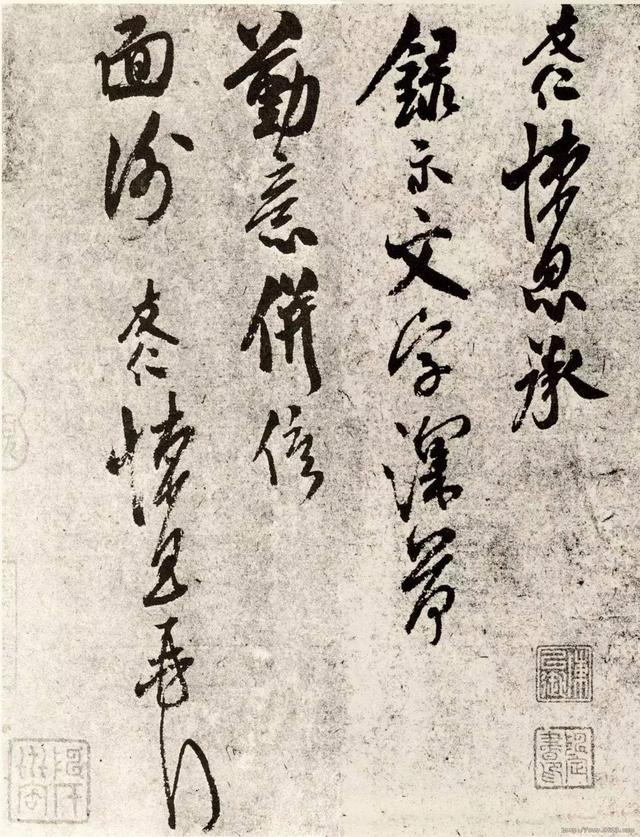 友仁悚息承
錄示文字深荷
勤意併俟
面謝 友仁悚息再拜